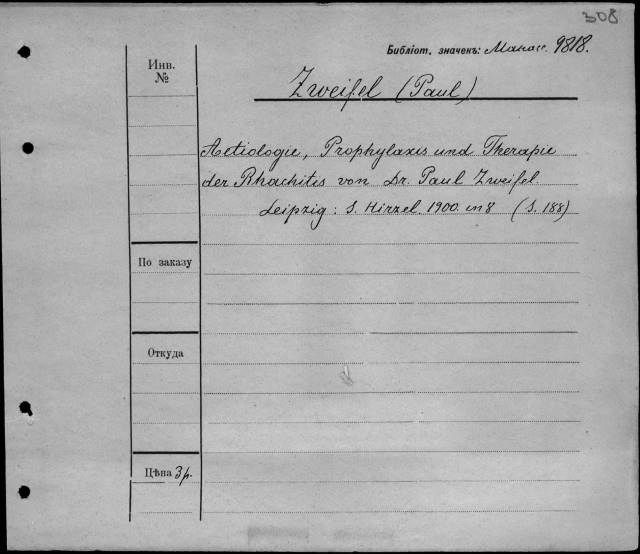 308
Библіот. значекъ: Манас. 9818.
Инв.
№
Zweifel (Paul)
Aetiologie, Prophylaxis und Therapie
der Rhachitis von Dr. Paul Zweifel.
Leipzig: S. Hirzel. 1900. in 8 (S. 188)
По заказу
Откуда
Цѣна 3 р.